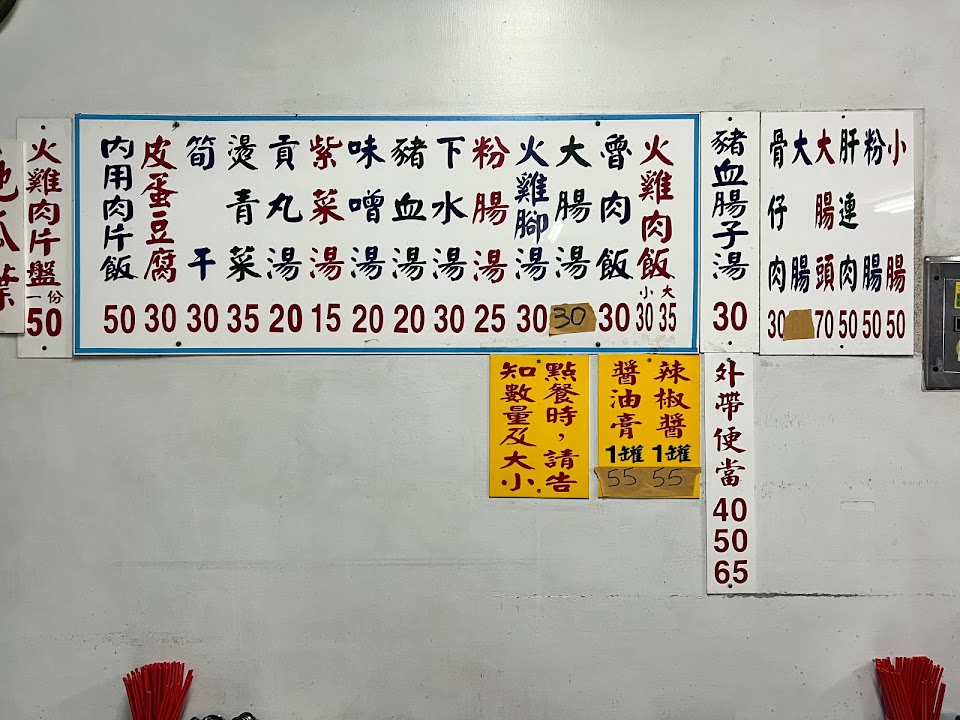 骨仔肉 30
大腸
大腸頭 70
肝連肉 50
粉腸 50
小腸 50
豬血腸子湯 30
火雞肉飯 小30 大35
魯肉飯 30
大腸湯 30
火雞腳湯 30
粉腸湯 25
下水湯 30
豬血湯 20
味噌湯 20
紫菜湯 15
貢丸湯 20
燙青菜 35
筍干 30
皮蛋豆腐 30
內用肉片飯 50
火雞肉片盤一份 50
地瓜葉
辣椒醬1罐 55
醬油膏1罐 55
點餐時，請告
知數量及大小
外帶便當
40
50
65